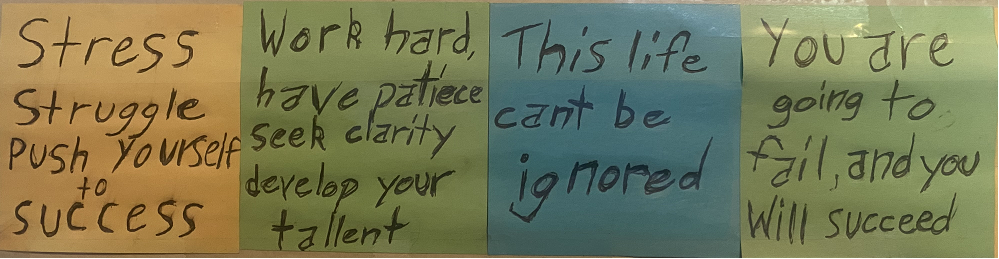 Stress
Struggle
Push Yourself
to
success
Work hard,
have patiece
seek clarity
develop your
tallent
This life
cant be
ignored
You are
going to
fail, and you
Will succeed